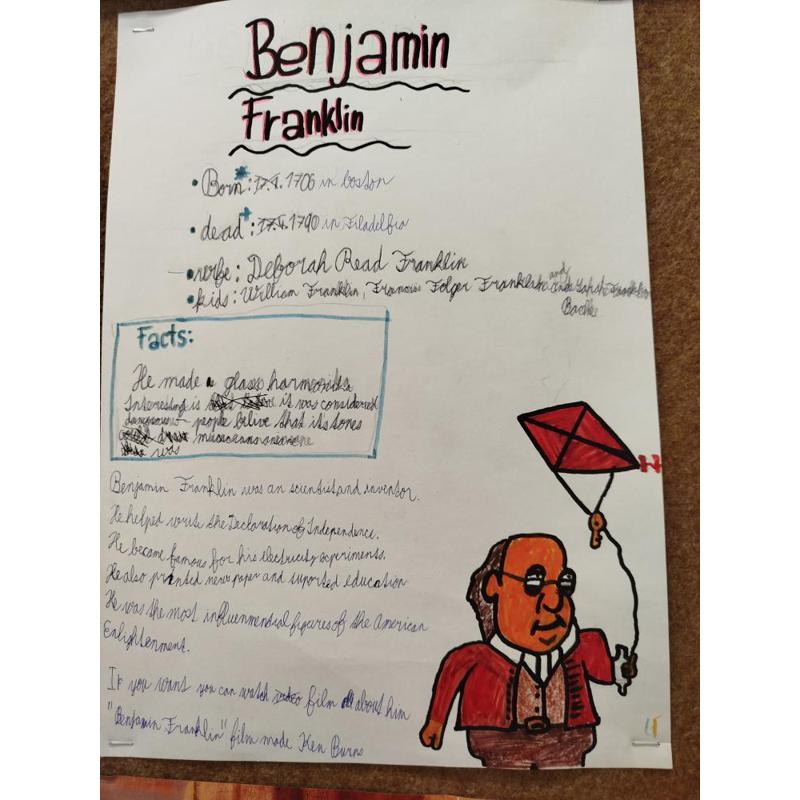 Benjamin
Franklin
• Born*: 17.1.1706 in boston
• dead+: 17.4.1790 in Filadelfia
• wife: Deborah Read Franklin
• kids: William Franklin, Francis Folger Franklin and
Bache
Facts:
He made a glass harmonika
Interesting is it was considered
dangerous - people belive that it's tones
was
Benjamin Franklin was an scientist and inventor.
He helped write the Declaration of Independence.
He became famous for his electricity experiments.
He also printed newspaper and suported education
He was the most influenmential figures of the American
Enlightenment.
If you want you can watch film all about him
"Benjamin Franklin" film made Ken Burns
4